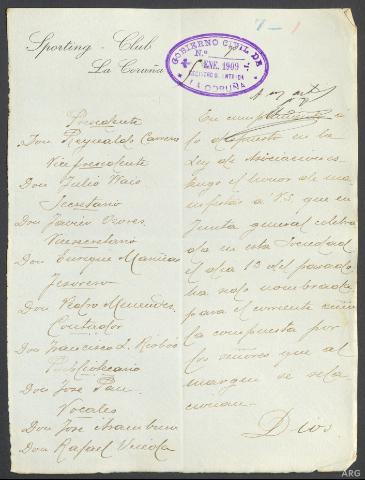 Sporting - Club
La Coruña
7-1
GOBIERNO CIVIL DE
N.º
ENE. 1909
REGISTRO DE ENTRADA
LA CORUÑA
Presidente
Don Reynaldo Carrero
Vicepresidente
Don Julio Wais
Secretario
Don Javier Ozores
Vicesecretario
Don Enrique Mariñas
Tesorero
Don Pedro Menendez
Contador
Don Francisco L. Riobóo
Bibliotecario
Don José Pan
Vocales
Don José
Don Rafael
En cumplimiento a
lo dispuesto en la
Ley de Asociaciones
tengo el honor de ma
nifestar á V.S. que en
Junta general celebra
da en esta Sociedad
el día 13 del pasado
ha sido nombrada
para el corriente año
la compuesta por
los señores que al
margen se rela
cionan.
Dios
ARG